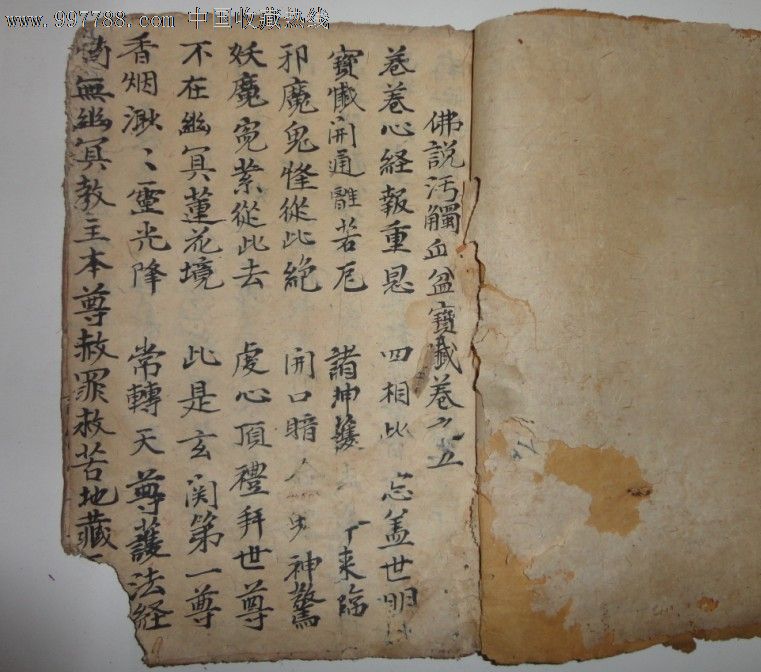 www.997788.com 中国收藏热线
佛説汚觸血盆寶懴卷之五
卷卷心経報重恩 四相此 忘盖世明
寳懴開通離苦厄 諸神護 来臨
邪魔鬼怪從此絶 開口暗 神驚
妖魔寃業從此去 虔心頂禮拜世尊
不在幽冥蓮花境 此是玄関第一尊
香烟渺〻靈光降 常轉天尊護法経
無幽冥教主本尊赦罪救苦地藏